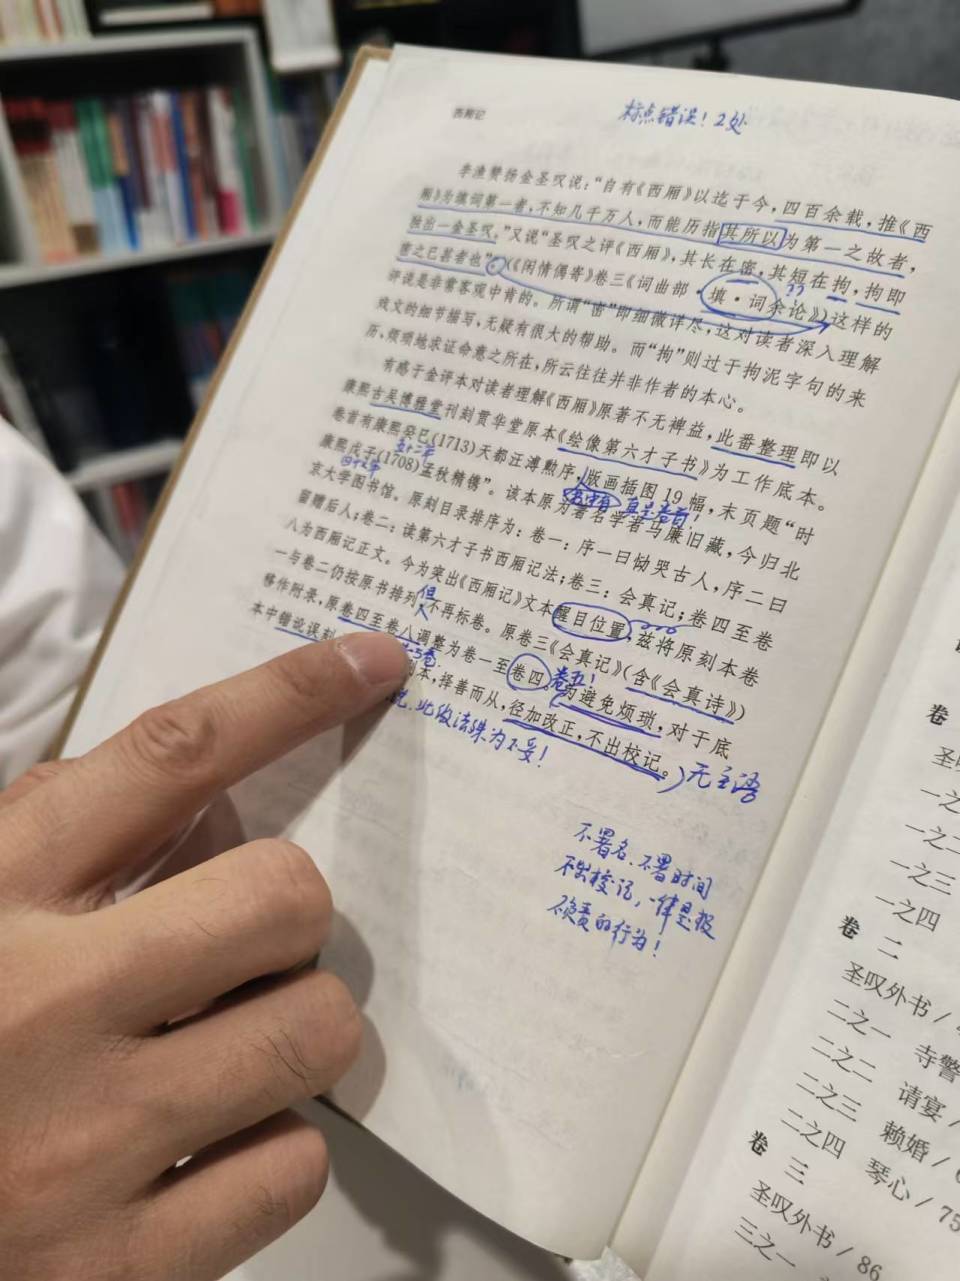 西厢记
标点错误！2处
李渔赞扬金圣叹说：“自有《西厢》以迄于今，四百余载，推《西
厢》为填词第一者，不知几千万人，而能历指其所以为第一之故者，
独出一金圣叹。”又说“圣叹之评《西厢》，其长在密，其短在拘，拘即
密之已甚者也”。（《闲情偶寄》卷三《词曲部·填·词余论》）这样的
??
评说是非常客观中肯的。所谓“密”即细微详尽，这对读者深入理解
戏文的细节描写，无疑有很大的帮助。而“拘”则过于拘泥字句的来
历，琐琐地求证命意之所在，所云往往并非作者的本心。
有感于金评本对读者理解《西厢》原著不无裨益，此番整理即以
康熙古吴博雅堂刊刻贯华堂原本《绘像第六才子书》为工作底本。
卷首有康熙癸巳(1713)天都汪溥勲序，版画插图19幅，末页题“时
五十二年
康熙戊子(1708)孟秋精镌”。该本原为著名学者马廉旧藏，今归北
四十七年
京大学图书馆。原刻目录排序为：卷一：序一曰恸哭古人，序二曰
留赠后人；卷二：读第六才子书西厢记法；卷三：会真记；卷四至卷
八为西厢记正文。今为突出《西厢记》文本醒目位置，兹将原刻本卷
一与卷二仍按原书排列，不再标卷。原卷三《会真记》（含《会真诗》）
但
移作附录，原卷四至卷八调整为卷一至卷四。为避免烦琐，对于底
卷五！
本中错讹误刻
本，择善而从，径加改正，不出校记。
无主语
此做法殊为不妥！
不署名、不署时间
不出校记，一律是极
不负责的行为！
卷
圣叹
一之
一之二
一之三
一之四
卷 二
圣叹外书 /
二之一 寺警
二之二 请宴 /
二之三 赖婚 / 6
二之四 琴心 / 75
卷 三
圣叹外书 / 86
三之一